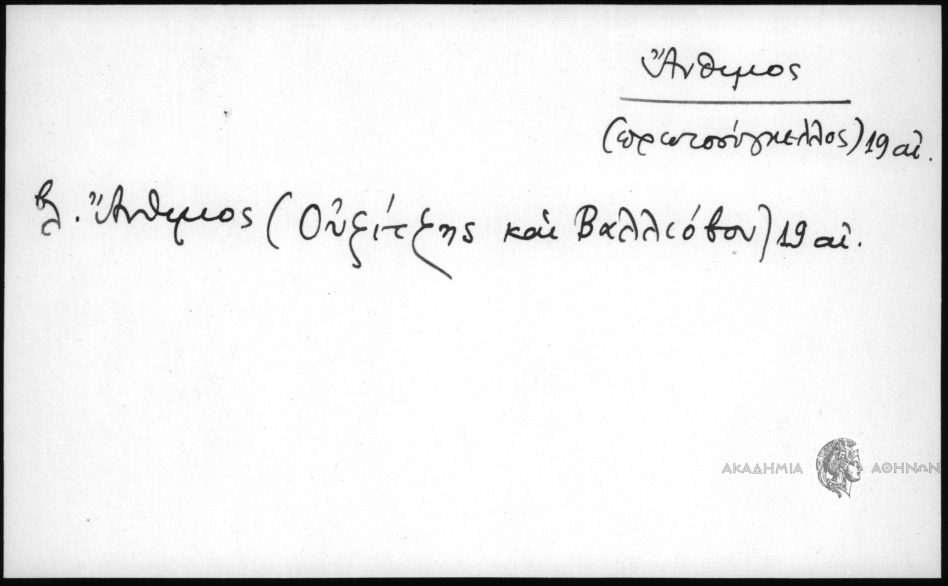 Ἄνθιμος
(πρωτοσύγκελλος) 19 αἰ.
βλ. Ἄνθιμος (Οὐζίτζης καὶ Βαλλιόβου) 19 αἰ.
ΑΚΑΔΗΜΙΑ ΑΘΗΝΩΝ